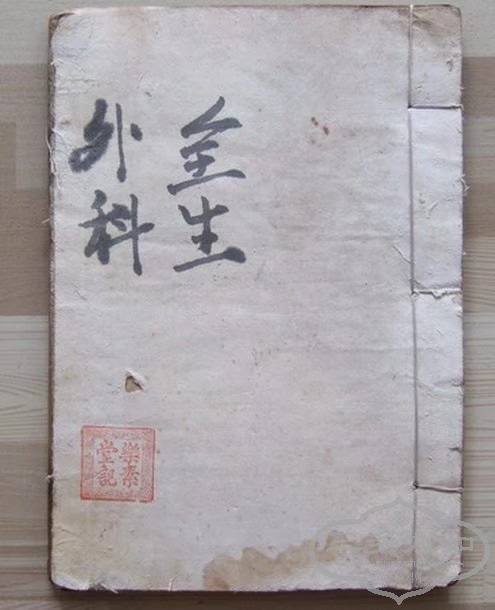 全生
外科
樂素
堂記